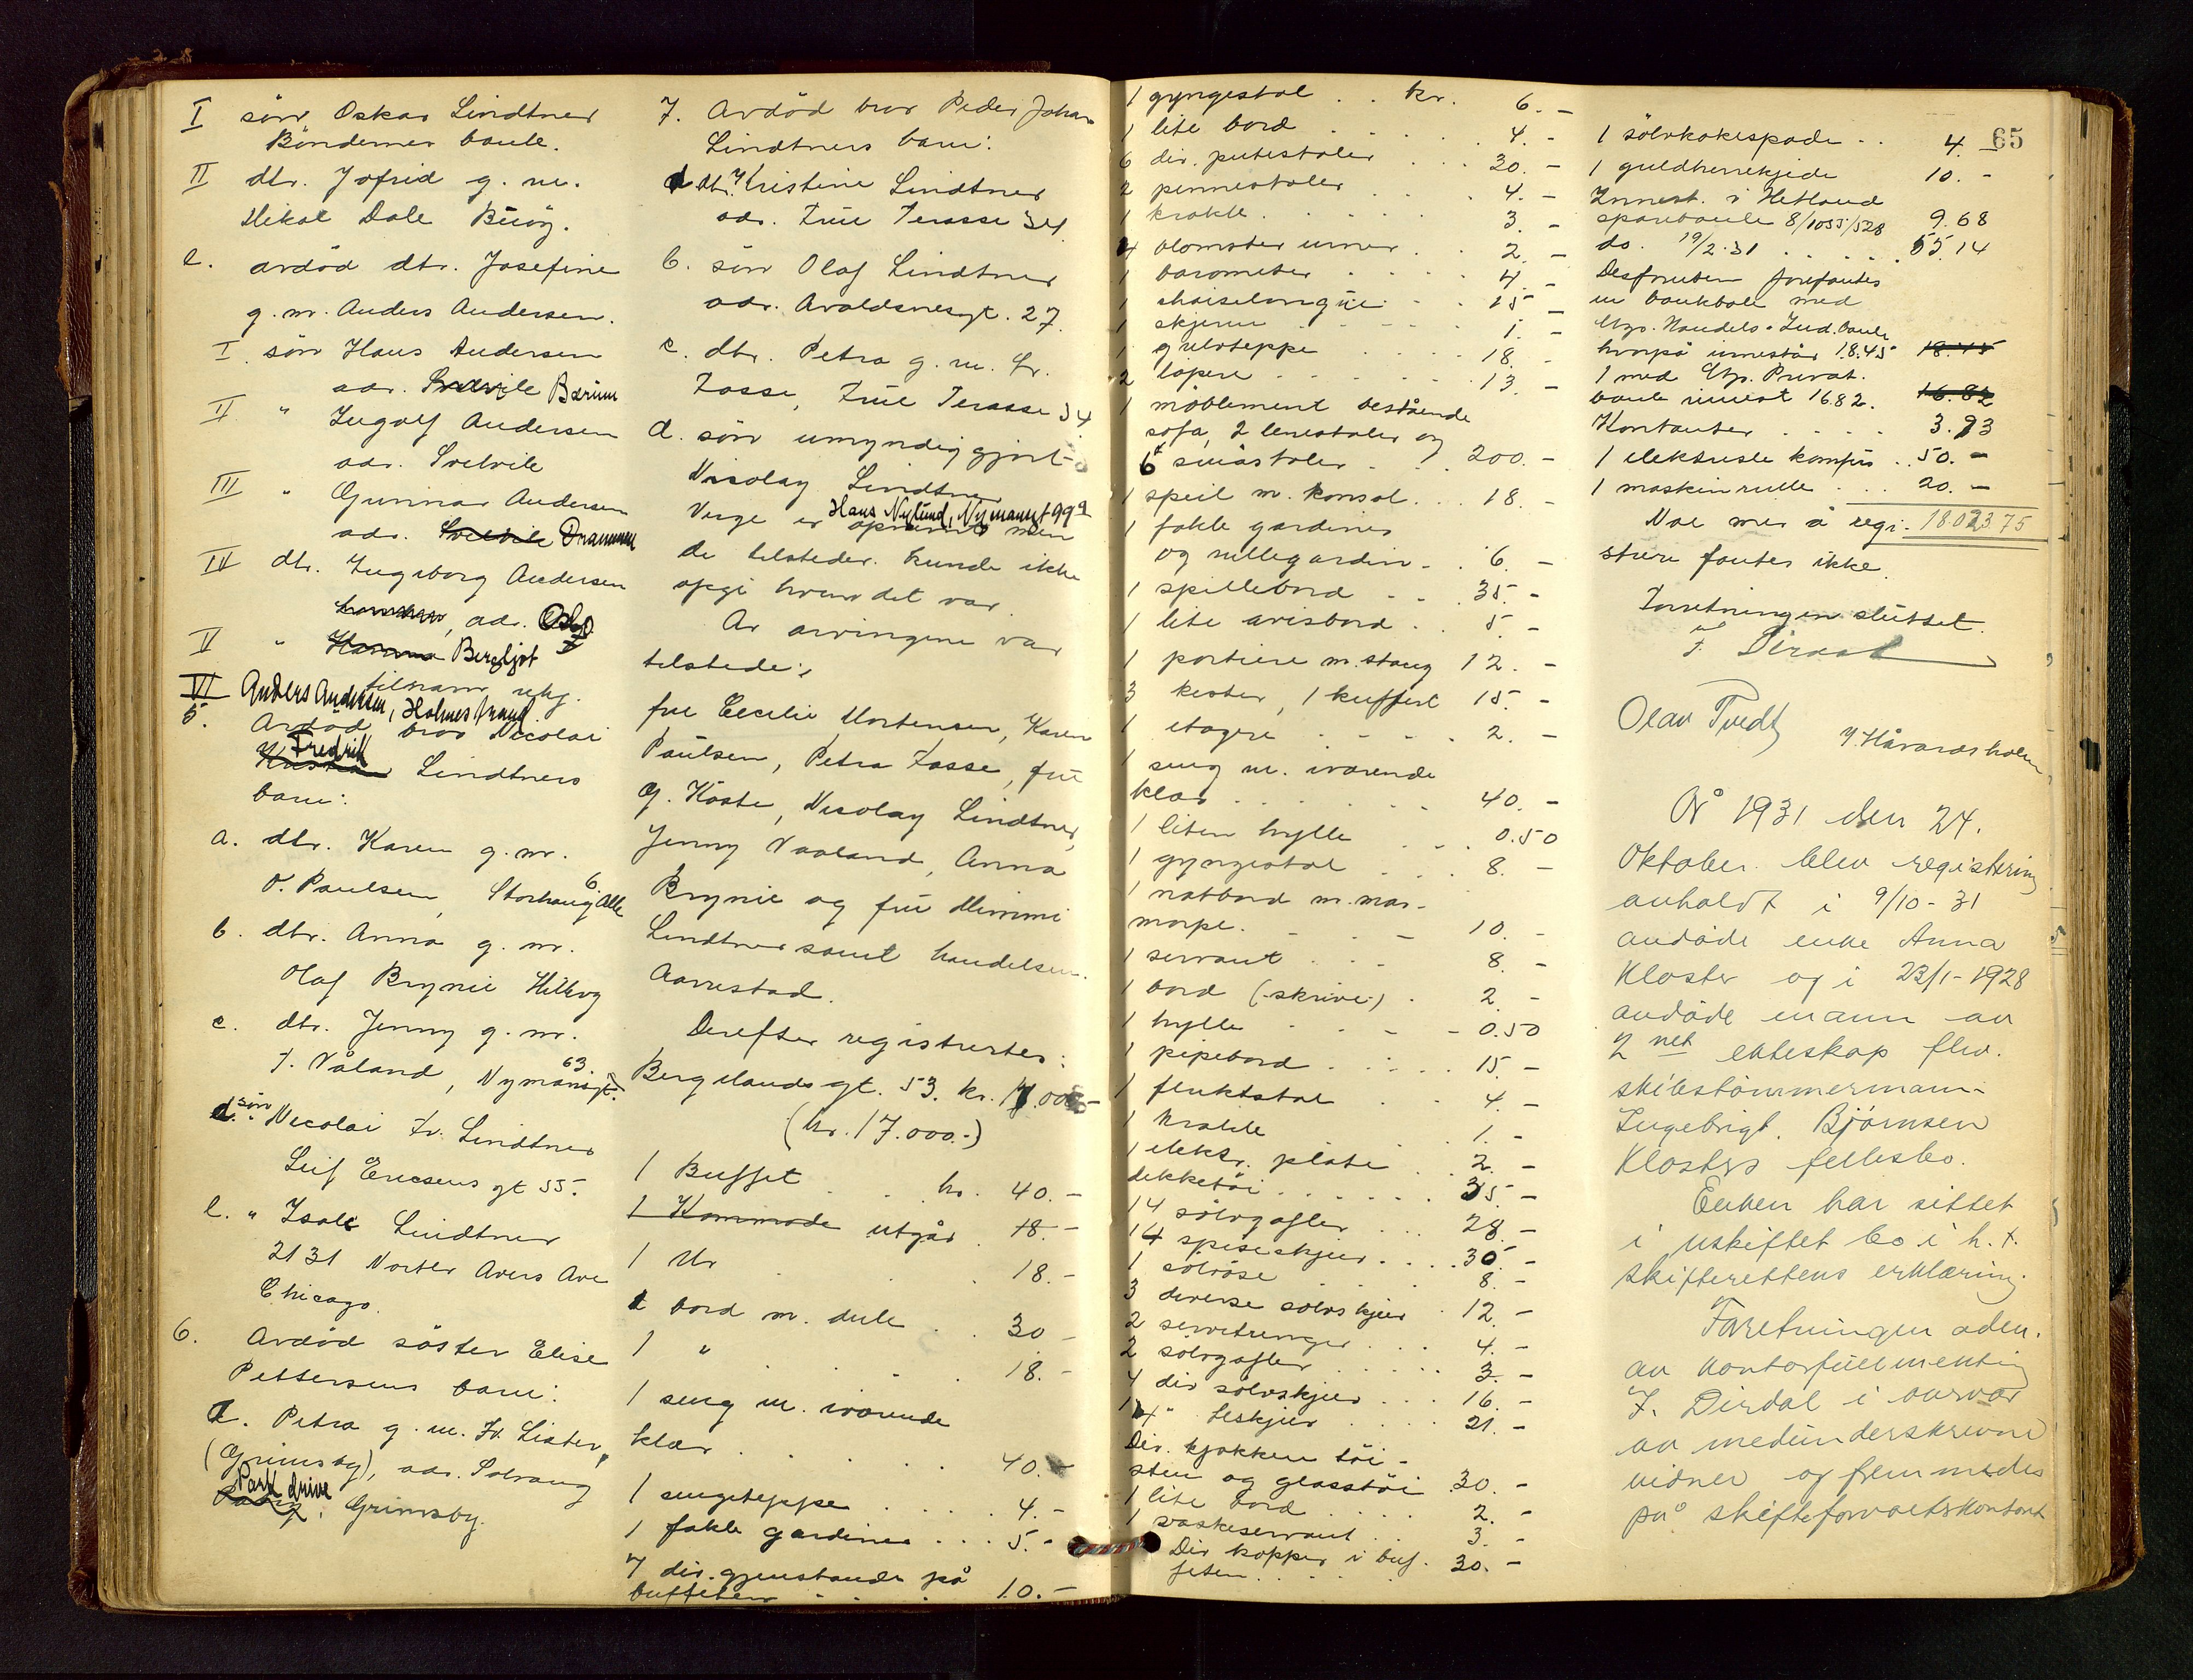 I sønn Oskar Lindtner
Böndernes bank.
II dtr. Jofrid g. m.
Mikal Dale Buöy.
e. avdöd dtr. Josefine
g. m. Anders Andersen.
I. sønn Hans Andersen
adr. Svelvik Bærum
II " Ingolf Andersen
adr. Svelvik
III " Gunnar Andersen
adr. Svelvik Drammen
IV dtr. Ingeborg Andersen
adr. Oslo
V " Hanna Bergljot
tilnavn ukj.
VI Anders Andersen, Holmestrand.
5. Avdöd bror Nicolai
Kristian Fredrik Lindtners
barn:
a. dtr. Karen g. m.
O. Paulsen, Storhaug Allé 6.
b. dtr. Anna g. m.
Olaf Brynie Hillevg
c. dtr. Jenny g. m.
T. Våland, Nymansgt. 63
d. sønn Nicolai Fr. Lindtner
Leif Ericsens gt 55.
e. " Isak Lindtner
2131 North Avers Ave
Chicago.
6. Avdöd söster Elise
Pettersens barn:
a. Petra g. m. Fr. Lister,
(Grimsby), adr. Solvang
Park drive, Grimsby.
7. Avdöd bror Peder Johan
Lindtners barn:
a. dtr. Kristine Lindtner
adr. True Terasse 34.
b. sønn Olaf Lindtner
adr. Avaldsnesgt. 27.
c. dtr. Petra g. m. Fr.
Zasse, True Terasse 34
d. sønn umyndiggjort
Nicolay Lindtner
Hans Nylund, Nymansgt 99a
Verge er opnevnt men
de tilstedev. kunde ikke
opgi hvem det var.
Av arvingene var
tilstede:
fru Cecilie Mortensen, Karen
Paulsen, Petra Zasse, fru
G. Köste, Nicolay Lindtner,
Jenny Vaaland, Anna
Brynie og fru Mimmi
Lindtner samt handelsm.
Aarrestad.
Derefter registrertes:
Bergelandsgt. 53. kr. 17.000.-
(kr. 17.000.-)
1 Buffet . . kr. 40.-
1 Kommode utgår . 18.-
1 Ur . . 18.-
1 bord m. duk . . 30.-
1 " . . 18.-
1 seng m. ivärende
klær . . . . 40.-
1 sengeteppe . . . 4.-
1 fakk gardiner . . . 5.-
7 div. gjenstande på
buffeten . . . 10.-
1 gyngestol . . kr. 6.-
1 lite bord . . . . 4.-
6 div. putestoler . . . 30.-
2 pinnestoler . . . 4.-
1 krakk . . . . . 3.-
4 blomster urner . . 2.-
1 barometer . . . . 4.-
1 chaiselongue . . 15.-
1 skjerm . . . . . 1.-
1 gulvteppe . . . . 18.-
2 löpere . . . . . 13.-
1 möblement bestående
sofa, 2 lenestoler og
6 småstoler . . 200.-
1 speil m. konsol . . . 18.-
1 fakk gardiner
og rullegardin . . 6.-
1 spillebord . . . 35.-
1 lite avisbord . . 5.-
1 portiere m. stang 12.-
3 kister, 1 kuffert 15.-
1 etagere . . . . 2.-
1 seng m. ivärende
klær . . . . . . 40.-
1 liten hylle . . . 0.50
1 gyngestol . . . 8.-
1 natbord m. mar-
morpl. . . . 10.-
1 servant . . . 8.-
1 bord (skrive-) . 2.-
1 hylle . . . . 0.50
1 pipebord . . . . . 15.-
1 fluktstol . . 4.-
1 krakk . . 1.-
1 elektr. plate . . 2.-
dekketöi . . . . . . 35.-
14 sölvgafler . . . 28.-
14 spiseskjeer . . . . 30.-
1 sölvöse . . . . 8.-
3 diverse sölvskjeer . 12.-
2 serviettringer . . . 4.-
2 sölvgafler . . . . . 3.-
4 div sölvskjeer . . . 16.-
14 " teskjeer . . . . 21.-
Div. kjökken töi-
sten og glasstöi 30.-
1 lite bord . . . . 2.-
1 vaskeservant . . 3.-
Div kopper i buf-
feten . . . . 30.-
65
1 sölvkakespade . . 4.-
1 guldherrekjede 10.-
Innest. i Hetland
sparebank 8/1055/528 9.68
do. 19/2.31 . . . . . 55.14
Desforuten forefantes
en bankbok med
Stvgr. Handels & Ind. bank
hvorpå innestår 18.45 18.45
1 med Stvgr. Privat.
bank innest 16.82. 16.82
Kontanter . . . . 3.93
1 elektriske komfyr . . 50.-
1 maskinrulle . . . 20.-
Noe mer å regi- 18.023.75
strere fantes ikke.
Forretningen sluttet.
F. Dirdal
Olav Tvedt
Y. Håvardsholm
År 1931 den 24.
Oktober. blev registrering
avholdt i 9/10-31
avdöde enke Anna
Kloster og i 23/1-1928
avdöde mann av
2net ekteskap fhv.
skibstömmermann
Ingebrigt Bjørnsen
Klosters fellesbo.
Enken har sittet
i uskiftet bo i h. t.
skifterettens erklæring.
Foretningen adm.
av kontorfullmektig
F. Dirdal i nærvær
av medunderskrevne
vidner og fremmedes
på skifteforvalterkontoret